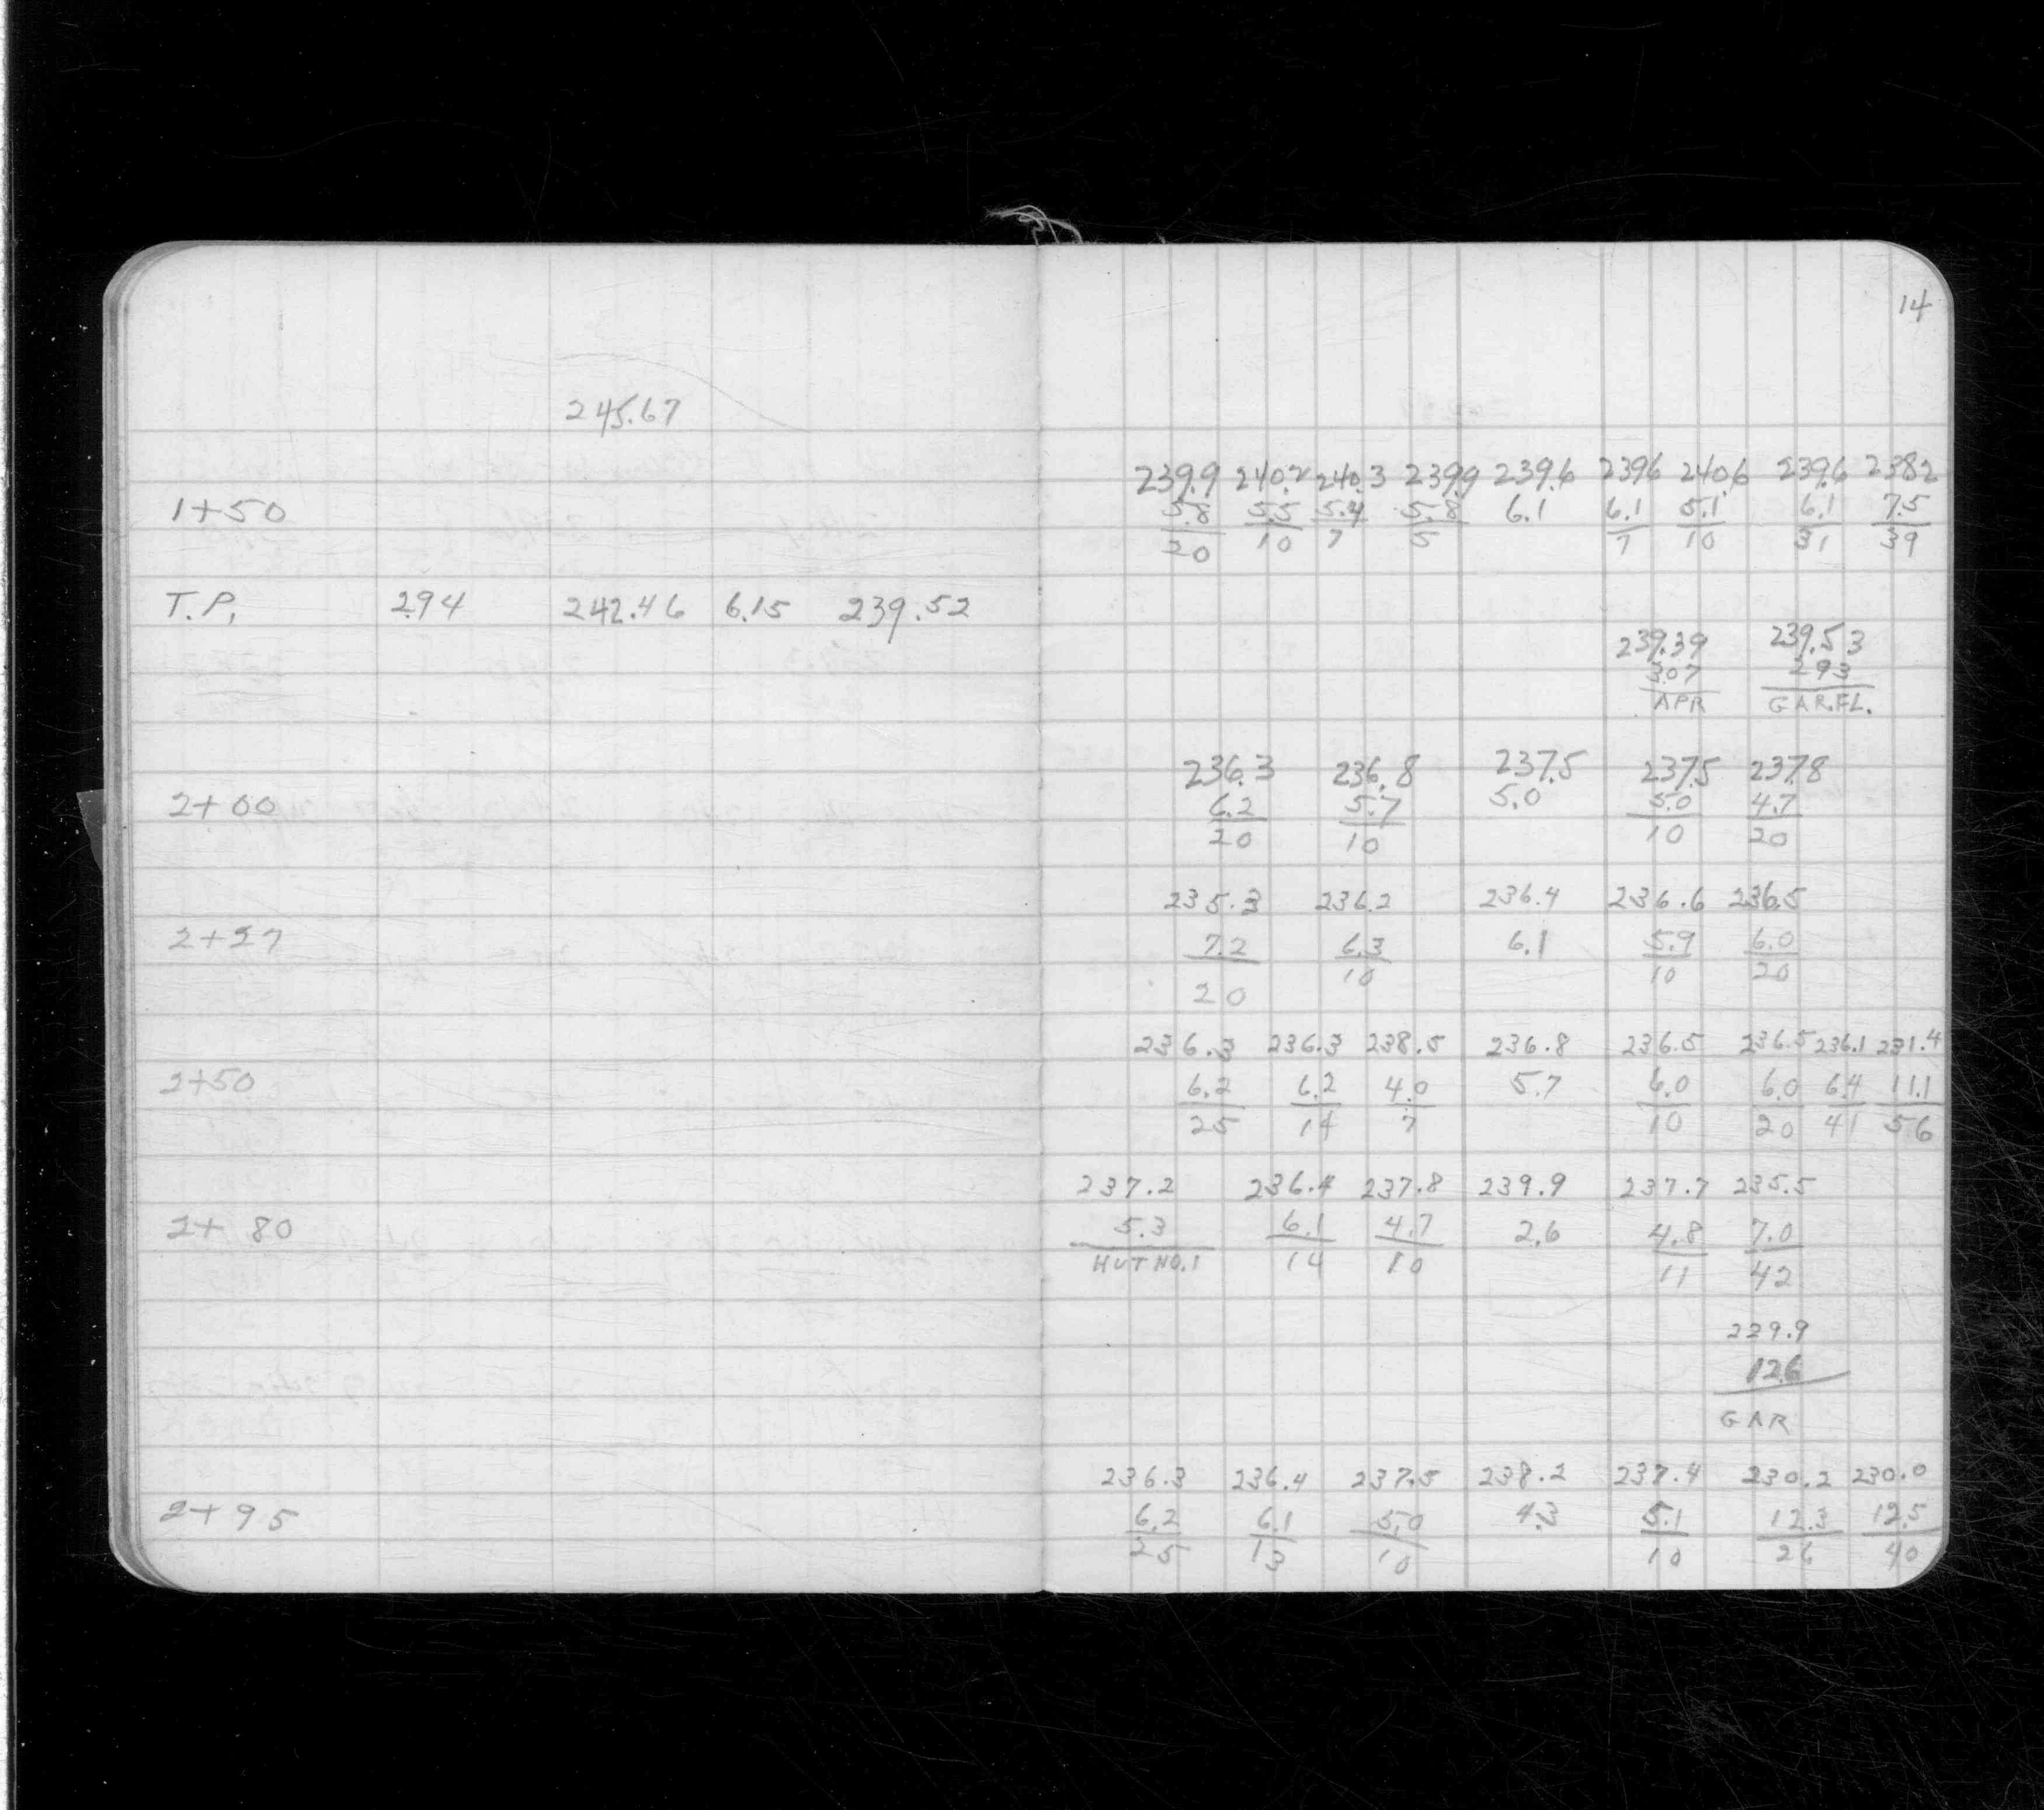 14
245.67
239.9 240.2 240.3 239.9 239.6 239.6 240.6 239.6 238.2
1+50 5.8 5.5 5.4 5.8 6.1 6.1 5.1 6.1 7.5
20 10 7 5 7 10 31 39
T.P. 2.94 242.46 6.15 239.52
239.39 239.53
3.07 2.93
APR GAR.FL.
236.3 236.8 237.5 237.5 237.8
2+00 6.2 5.7 5.0 5.0 4.7
20 10 10 20
235.3 236.2 236.4 236.6 236.5
2+27 7.2 6.3 6.1 5.9 6.0
10 10 20
20
236.3 236.3 238.5 236.8 236.5 236.5 236.1 231.4
2+50 6.2 6.2 4.0 5.7 6.0 6.0 6.4 11.1
25 14 7 10 20 41 56
237.2 236.4 237.8 239.9 237.7 235.5
2+80 5.3 6.1 4.7 2.6 4.8 7.0
HUT NO.1 14 10 11 42
229.9
12.6
GAR
236.3 236.4 237.5 238.2 237.4 230.2 230.0
2+95 6.2 6.1 5.0 4.3 5.1 12.3 12.5
25 13 10 10 26 40